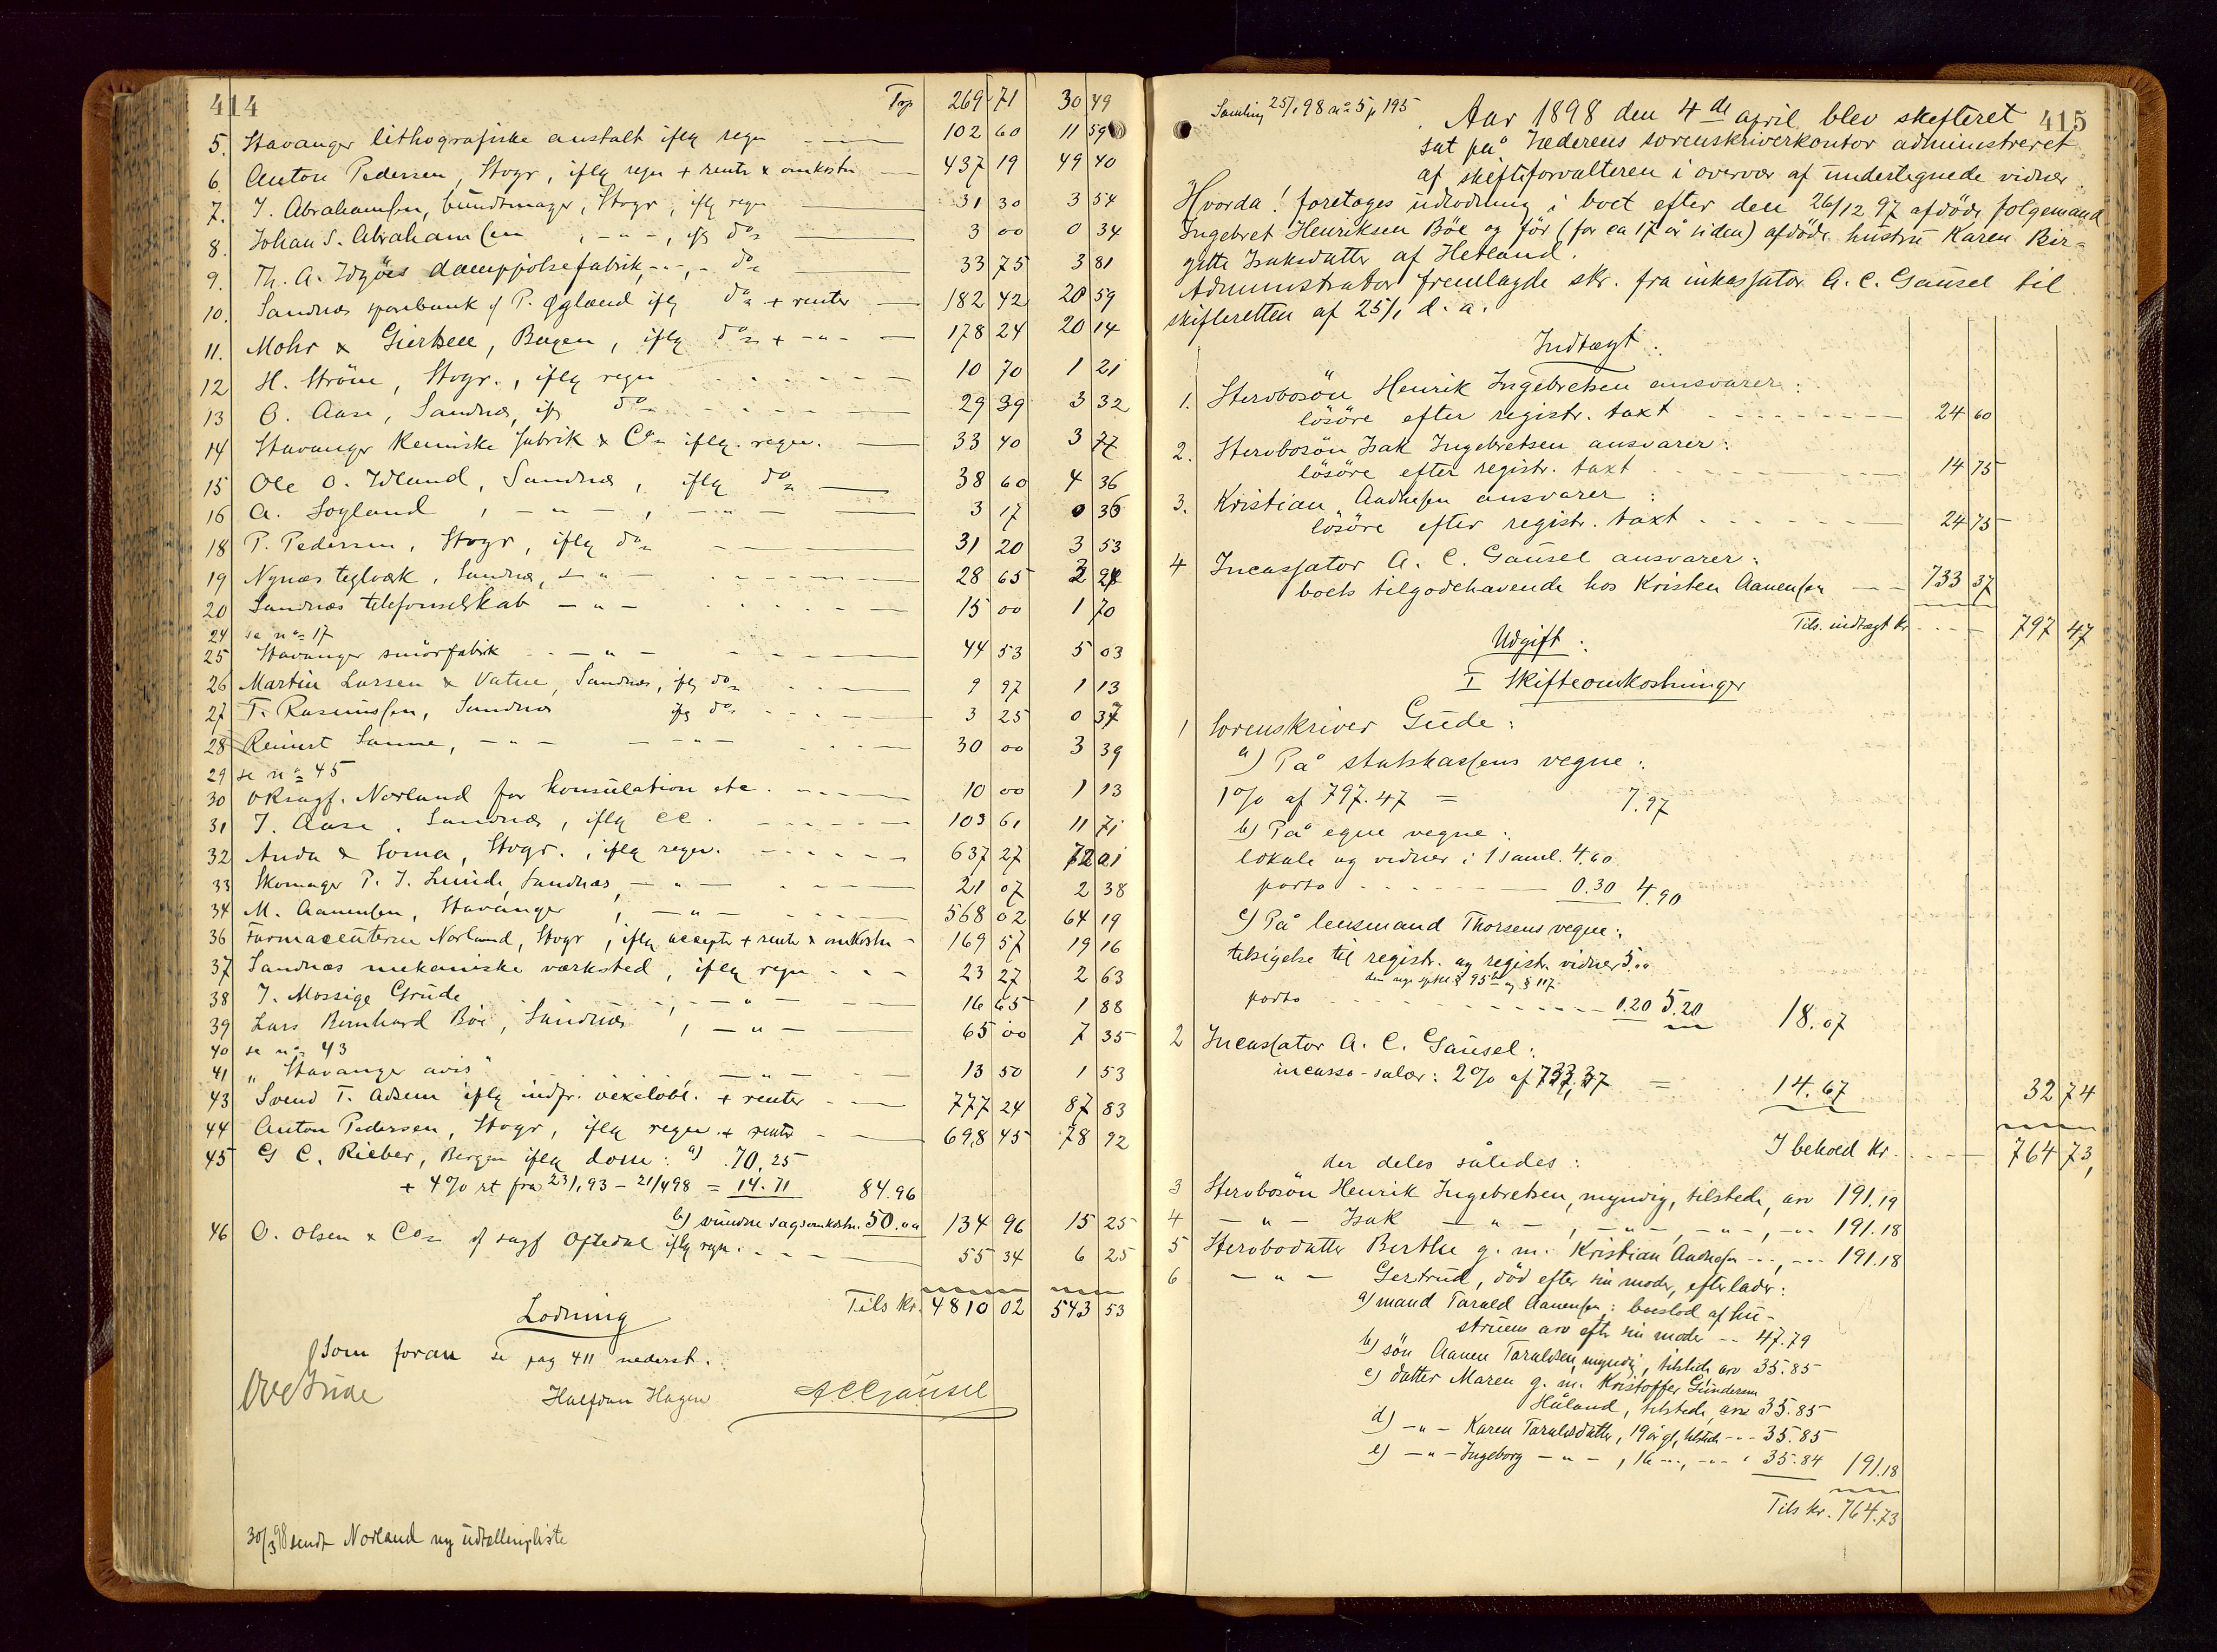 414
Trp 269 71 30 49
5. Stavanger lithografiske anstalt iflg regn 102 60 11 59
6. Anton Pedersen, Stvgr, iflg regn + rente & omkostn 437 19 49 40
7. J. Abrahamsen, bundtmager, Stvgr, iflg regn 31 30 3 54
8. Johan S. Abrahamsen, - " -, iflg do 3 00 0 34
9. Th. A. Idsöes damppölsefabrik, - " -, - do 33 75 3 81
10. Sandnæs sparebank v/ P. Øglænd iflg do + renter 182 42 20 59
11. Mohr & Giertsen, Bergen, iflg do + - " - 178 24 20 14
12 H. Ström, Stvgr., iflg regn 10 70 1 21
13 O. Aase, Sandnæs, iflg do 29 39 3 32
14 Stavanger kemiske fabrik & Co iflg. regn. 33 40 3 77
15 Ole O. Idland, Sandnæs, iflg do 38 60 4 36
16 A. Soyland, - " -, - " - 3 17 0 36
18 P. Pedersen, Stvgr, iflg do 31 20 3 53
19 Nynæs teglværk, Sandnæs, - " - 28 65 3 24
20 Sandnæs telefonselskab - " - 15 00 1 70
24 se no 17
25 Stavanger smörfabrik - " - 44 53 5 03
26 Martin Larsen & Vatne, Sandnæs, iflg do 9 97 1 13
27 T. Rasmussen, Sandnæs iflg do 3 25 0 37
28 Reinert Sanne, - " - - " - 30 00 3 39
29 se no 45
30 oksagf. Norland for konsulation etc. 10 00 1 13
31 J. Aase, Sandnæs, iflg cc. 103 61 11 71
32 Anda & Soma, Stvgr., iflg regn. 637 27 72 01
33 Skomager P. J. Lunde, Sandnæs, - " - 21 07 2 38
34 M. Aanensen, Stavanger, - " - 568 02 64 19
36 Farmaceuterne Norland, Stvgr, iflg accepter + rente & omkostn - 169 57 19 16
37 Sandnæs mekaniske værksted, iflg regn 23 27 2 63
38 J. Mossige Grude, - " - 16 65 1 88
39 Lars Bernhard Böe, Sandnæs, - " - 65 00 7 35
40 se no 43
41 "Stavanger avis" - " - 13 50 1 53
43 Svend T. Adsem iflg indfr. vexelobl. + renter 777 24 87 83
44 Anton Pedersen, Stvgr, iflg regn. + rente 698 45 78 92
45 G C. Rieber, Bergen iflg dom: a) 70,25
+ 4% rt fra 23/1 93 - 21/4 98 = 14.71 84.96
b) vundne sagsomkostn. 50.00 134 96 15 25
46 O. Olsen & Co v/ sagf Oftedal iflg regn. 55 34 6 25
Tils kr. 4810 02 543 53
Lodning
Som foran se pag 411 nederst.
Ove Gude Halfdan Hagen A C Gausel
30/3 98 sendt Norland ny udtællingsliste
415
Samling 25/1 98 no 5 p 195
Aar 1898 den 4de april blev skifteret
sat på Jæderens sorenskriverkontor administreret
af skifteforvalteren i overvær af undertegnede vidner
Hvorda! foretoges udlodning i boet efter den 26/12 97 afdöde folgemand
Ingebret Henriksen Böe og för (for ca 17 år siden) afdöde hustru Karen Bir-
gitte Isaksdatter af Hetland.
Administrator fremlagde skr. fra inkassator A. C. Gausel til
skifteretten af 25/1 d. a.
Indtægt:
1. Stervbosön Henrik Ingebretsen ansvarer:
lösöre efter registr. taxt 24 60
2. Stervbosön Isak Ingebretsen ansvarer:
lösöre efter registr. taxt 14 75
3. Kristian Andresen ansvarer:
lösöre efter registr. taxt 24 75
4 Incassator A. C. Gausel ansvarer:
boets tilgodehavende hos Kristen Aanensen 733 37
Tils. indtægt kr 797 47
Udgift:
I Skifteomkostninger
1 Sorenskriver Gude:
a) På statskassens vegne:
1% af 797.47 = 7.97
b) På egne vegne:
lokale og vidner i 1 saml. 4.60
porto 0.30 4.90
c) På lensmand Thorsens vegne:
tilsigelse til registr. og registr. vidner 5.00
§ 95 og § 117
porto 0.20 5.20 18.07
2 Incassator A. C. Gausel:
incasso-salær: 2% af 733,37 = 14.67 32 74
I behold kr. 764 73,
der deles således:
3 Stervbosön Henrik Ingebretsen, myndig, tilstede, arv 191.19
4 - " - Isak - " -, - " -, - " -, - " - 191.18
5 Stervbodatter Berthe g. m. Kristian Andresen - " -, - " - 191.18
6 - " - Gertrud, död efter sin moder, efterlader:
a) mand Tarald Aanensen: boeslod af hu-
struens arv efter sin moder -- 47.79
b) sön Aanen Taraldsen, myndig, tilstede arv 35.85
c) datter Maren g. m. Kristoffer Gundersen
Håland, tilstede, arv 35.85
d) - " - Karen Taraldsdatter, 19 år gl, tilstede - " - 35.85
e) - " - Ingeborg - " -, 16 - " -, - " - 35.84 191.18
Tils kr. 764.73